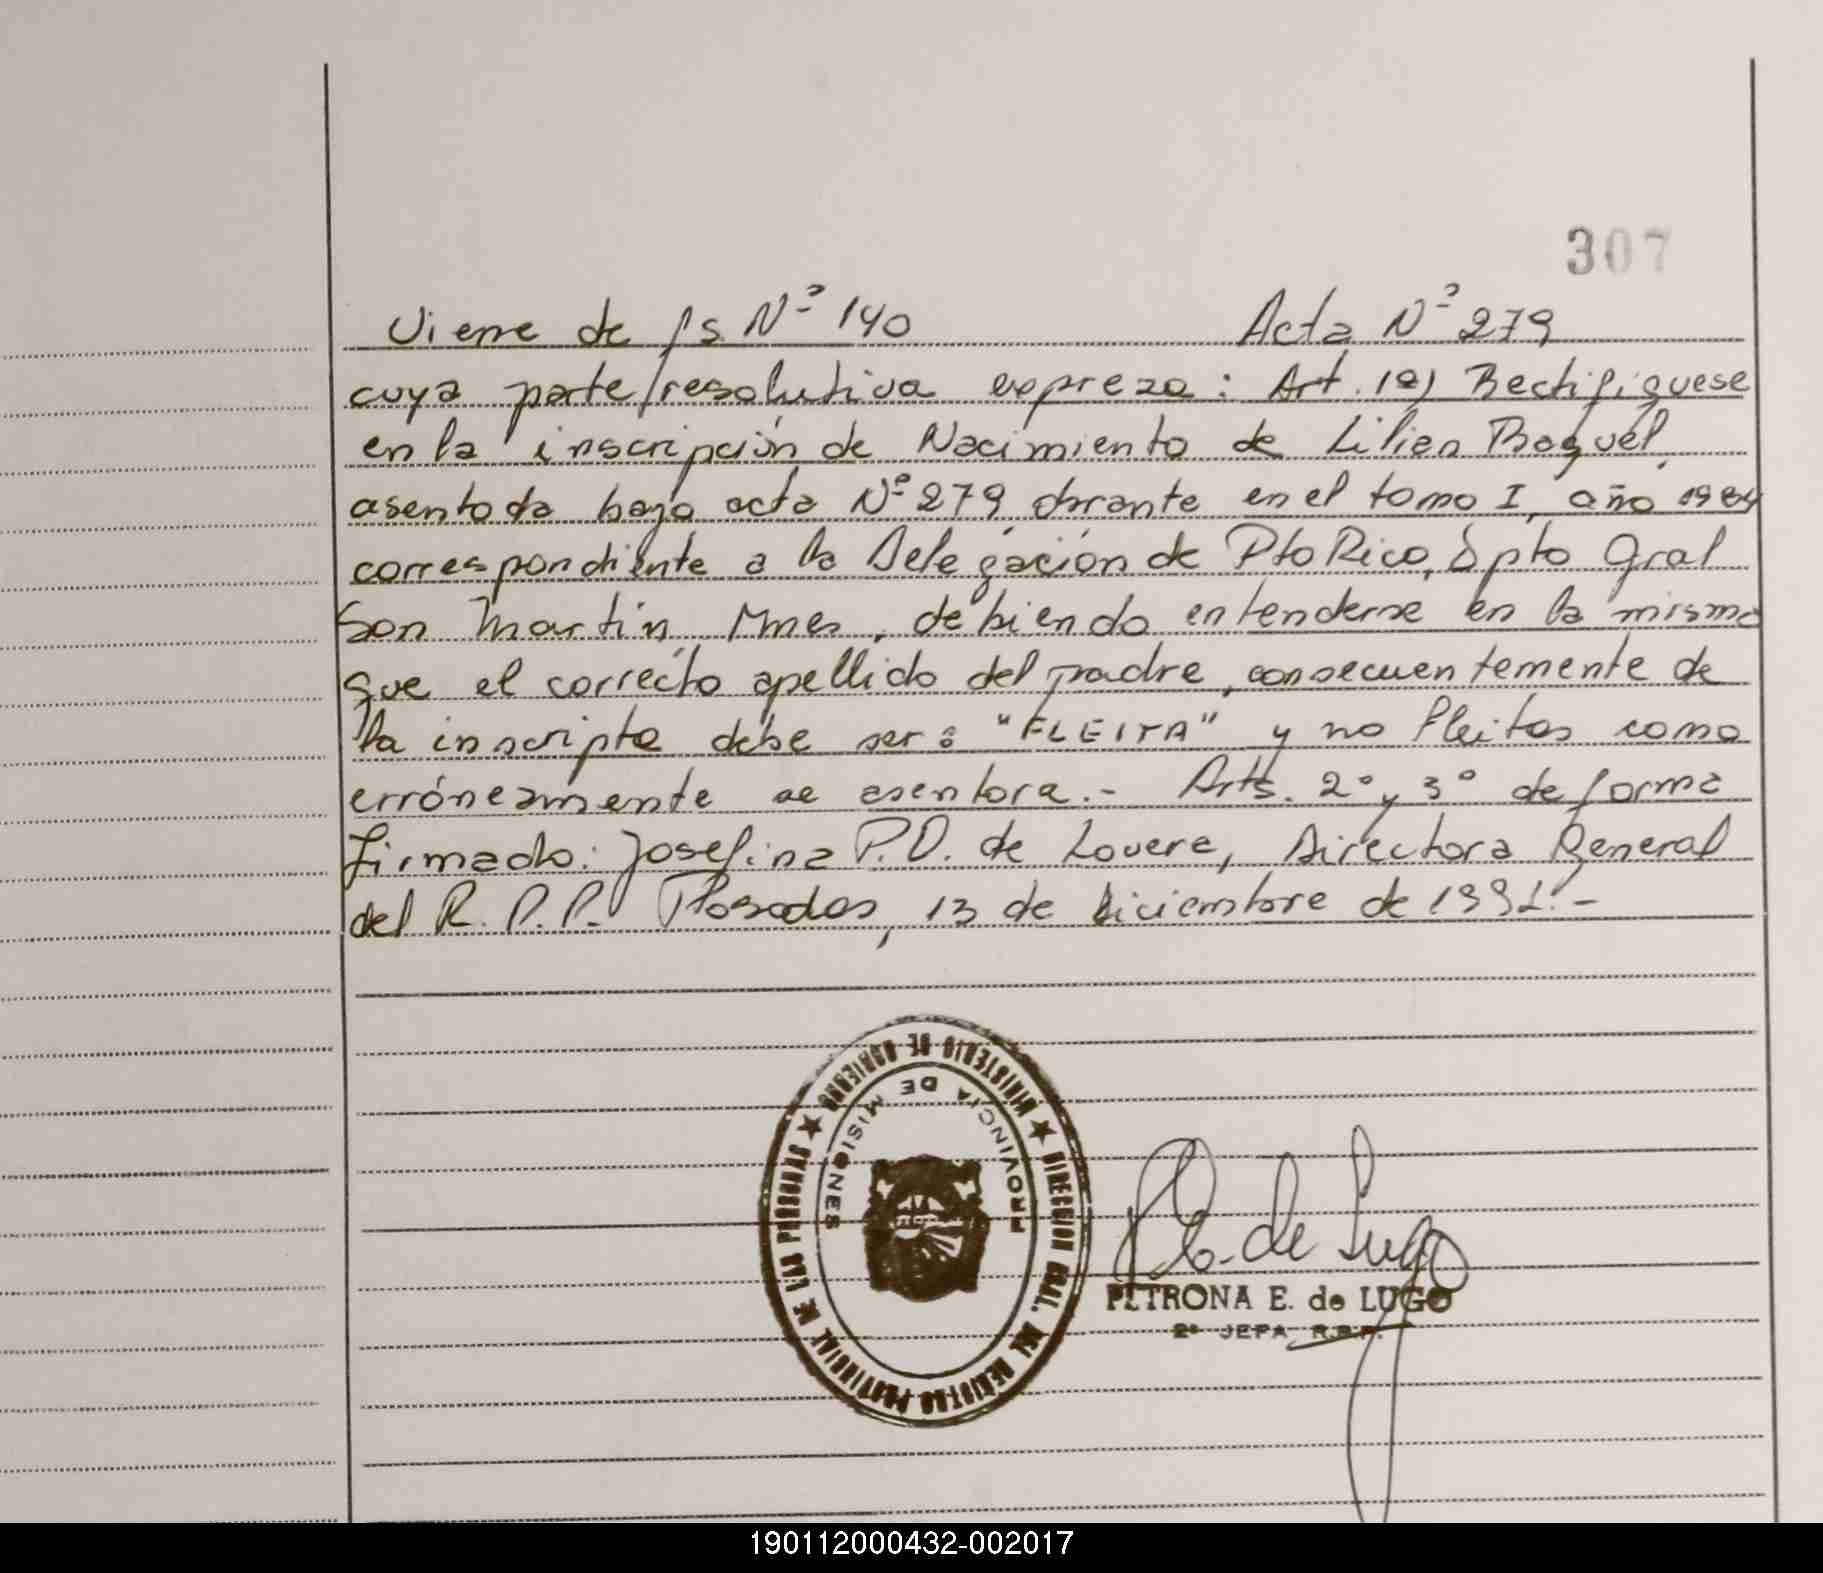 307
Viene de fs Nº 140 Acta Nº 279
cuya parte/resolutiva expreza: Art. 1º) Rectifiquese
en la inscripción de Nacimiento de Lilian Raquel,
asentada bajo acta Nº 279 obrante en el tomo I, año 1984
correspondiente a la Delegación de Pto Rico, Dpto Gral
San Martín Mnes, debiendo entenderse en la misma
que el correcto apellido del padre, consecuentemente de
la inscripta debe ser: "FLEITA" y no Fleitas como
erróneamente se asentara.- Arts. 2º y 3º de forma
Firmado: Josefina P.D. de Lovera, Directora General
del R. P.P. Posadas, 13 de diciembre de 1991.-
MINISTERIO DE GOBIERNO ★ DIRECCION GRAL. DEL REGISTRO PROVINCIAL DE LAS PERSONAS ★
PROVINCIA DE MISIONES
P.E. de Lugo
PETRONA E. de LUGO
2º JEFA R.P.P.
190112000432-002017